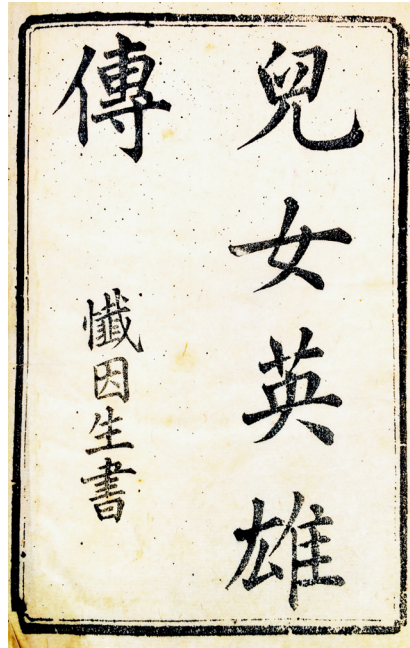 兒女英雄
傳
懺因生書